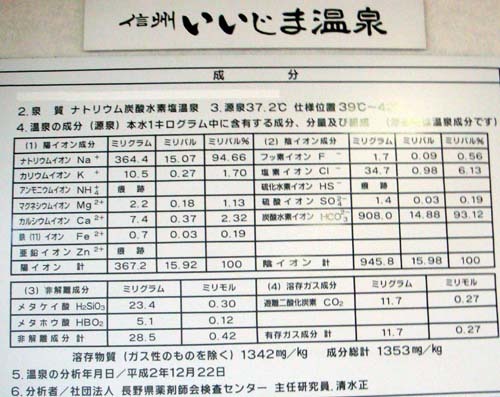 信州 いいじま温泉
成分
2.泉 質 ナトリウム炭酸水素塩温泉 3.源泉37.2℃ 仕様位置39℃~4
4.温泉の成分(源泉)本水1キログラム中に含有する成分、分量及び組成 は温泉成分です)
(1) 陽イオン成分 ミリグラム ミリバル ミリバル% (2) 陰イオン成分 ミリグラム ミリバル ミリバル%
ナトリウムイオン Na+ 364.4 15.07 94.66 フッ素イオン F− 1.7 0.09 0.56
カリウムイオン K+ 10.5 0.27 1.70 塩素イオン Cl− 34.7 0.98 6.13
アンモニウムイオン NH4+ 痕跡 硫化水素イオン HS−
マグネシウムイオン Mg2+ 2.2 0.18 1.13 硫酸イオン SO42− 1.4 0.03 0.19
カルシウムイオン Ca2+ 7.4 0.37 2.32 炭酸水素イオン HCO3 908.0 14.88 93.12
鉄(II)イオン Fe2+ 0.7 0.03 0.19
亜鉛イオン Zn2+ 痕跡
陽イオン 計 367.2 15.92 100 陰イオン 計 945.8 15.98 100
(3) 非解離成分 ミリグラム ミリモル (4) 溶存ガス成分 ミリグラム ミリモル
メタケイ酸 H2SiO3 23.4 0.30 遊離二酸化炭素 CO2 11.7 0.27
メタホウ酸 HBO2 5.1 0.12
非解離成分 計 28.5 0.42 有存ガス成分 計 11.7 0.27
溶存物質(ガス性のものを除く)1342mg/kg 成分総計 1353mg/kg
5.温泉の分析年月日/平成2年12月22日
6.分析者/社団法人 長野県薬剤師会検査センター 主任研究員.清水正